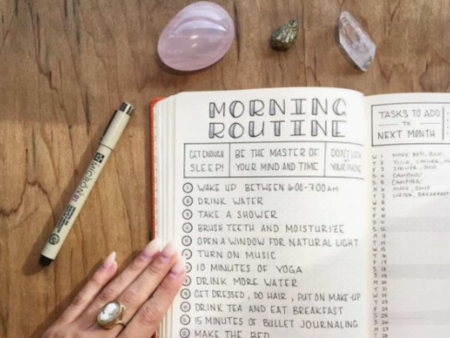 MORNING
ROUTINE
GET ENOUGH SLEEP!
BE THE MASTER OF YOUR MIND AND TIME
DON'T
YOUR PHONE
WAKE UP BETWEEN 6:00-7:00 AM
DRINK WATER
TAKE A SHOWER
BRUSH TEETH AND MOISTURIZE
OPEN A WINDOW FOR NATURAL LIGHT
TURN ON MUSIC
10 MINUTES OF YOGA
DRINK MORE WATER
GET DRESSED, DO HAIR, PUT ON MAKE-UP
DRINK TEA AND EAT BREAKFAST
15 MINUTES OF BULLET JOURNALING
MAKE THE BED
TASKS TO ADD
TO
NEXT MONTH
MICRON